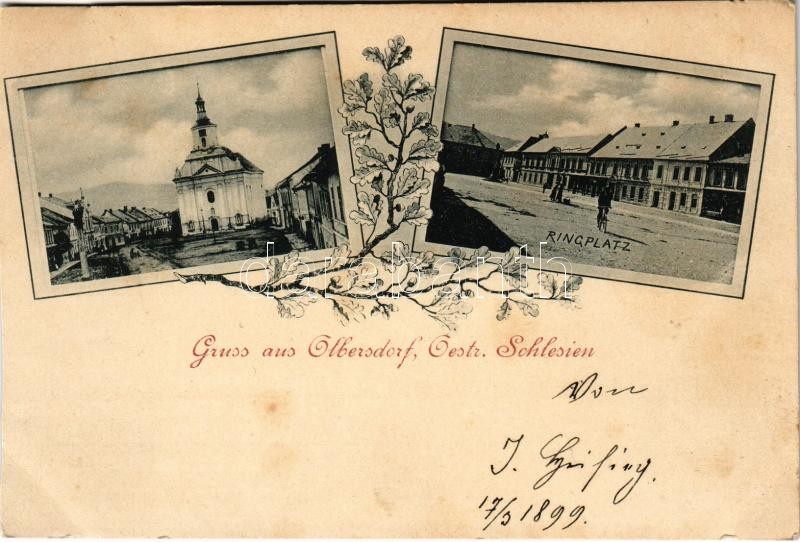 RINGPLATZ
darabanth
Gruss aus Olbersdorf, Oestr. Schlesien
Von
J.
17/3 1899.